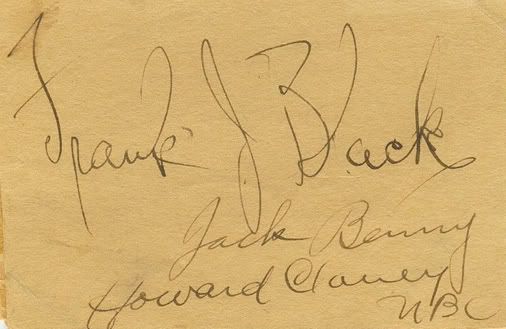 Frank J Black
Jack Benny
Howard Claney
NBC